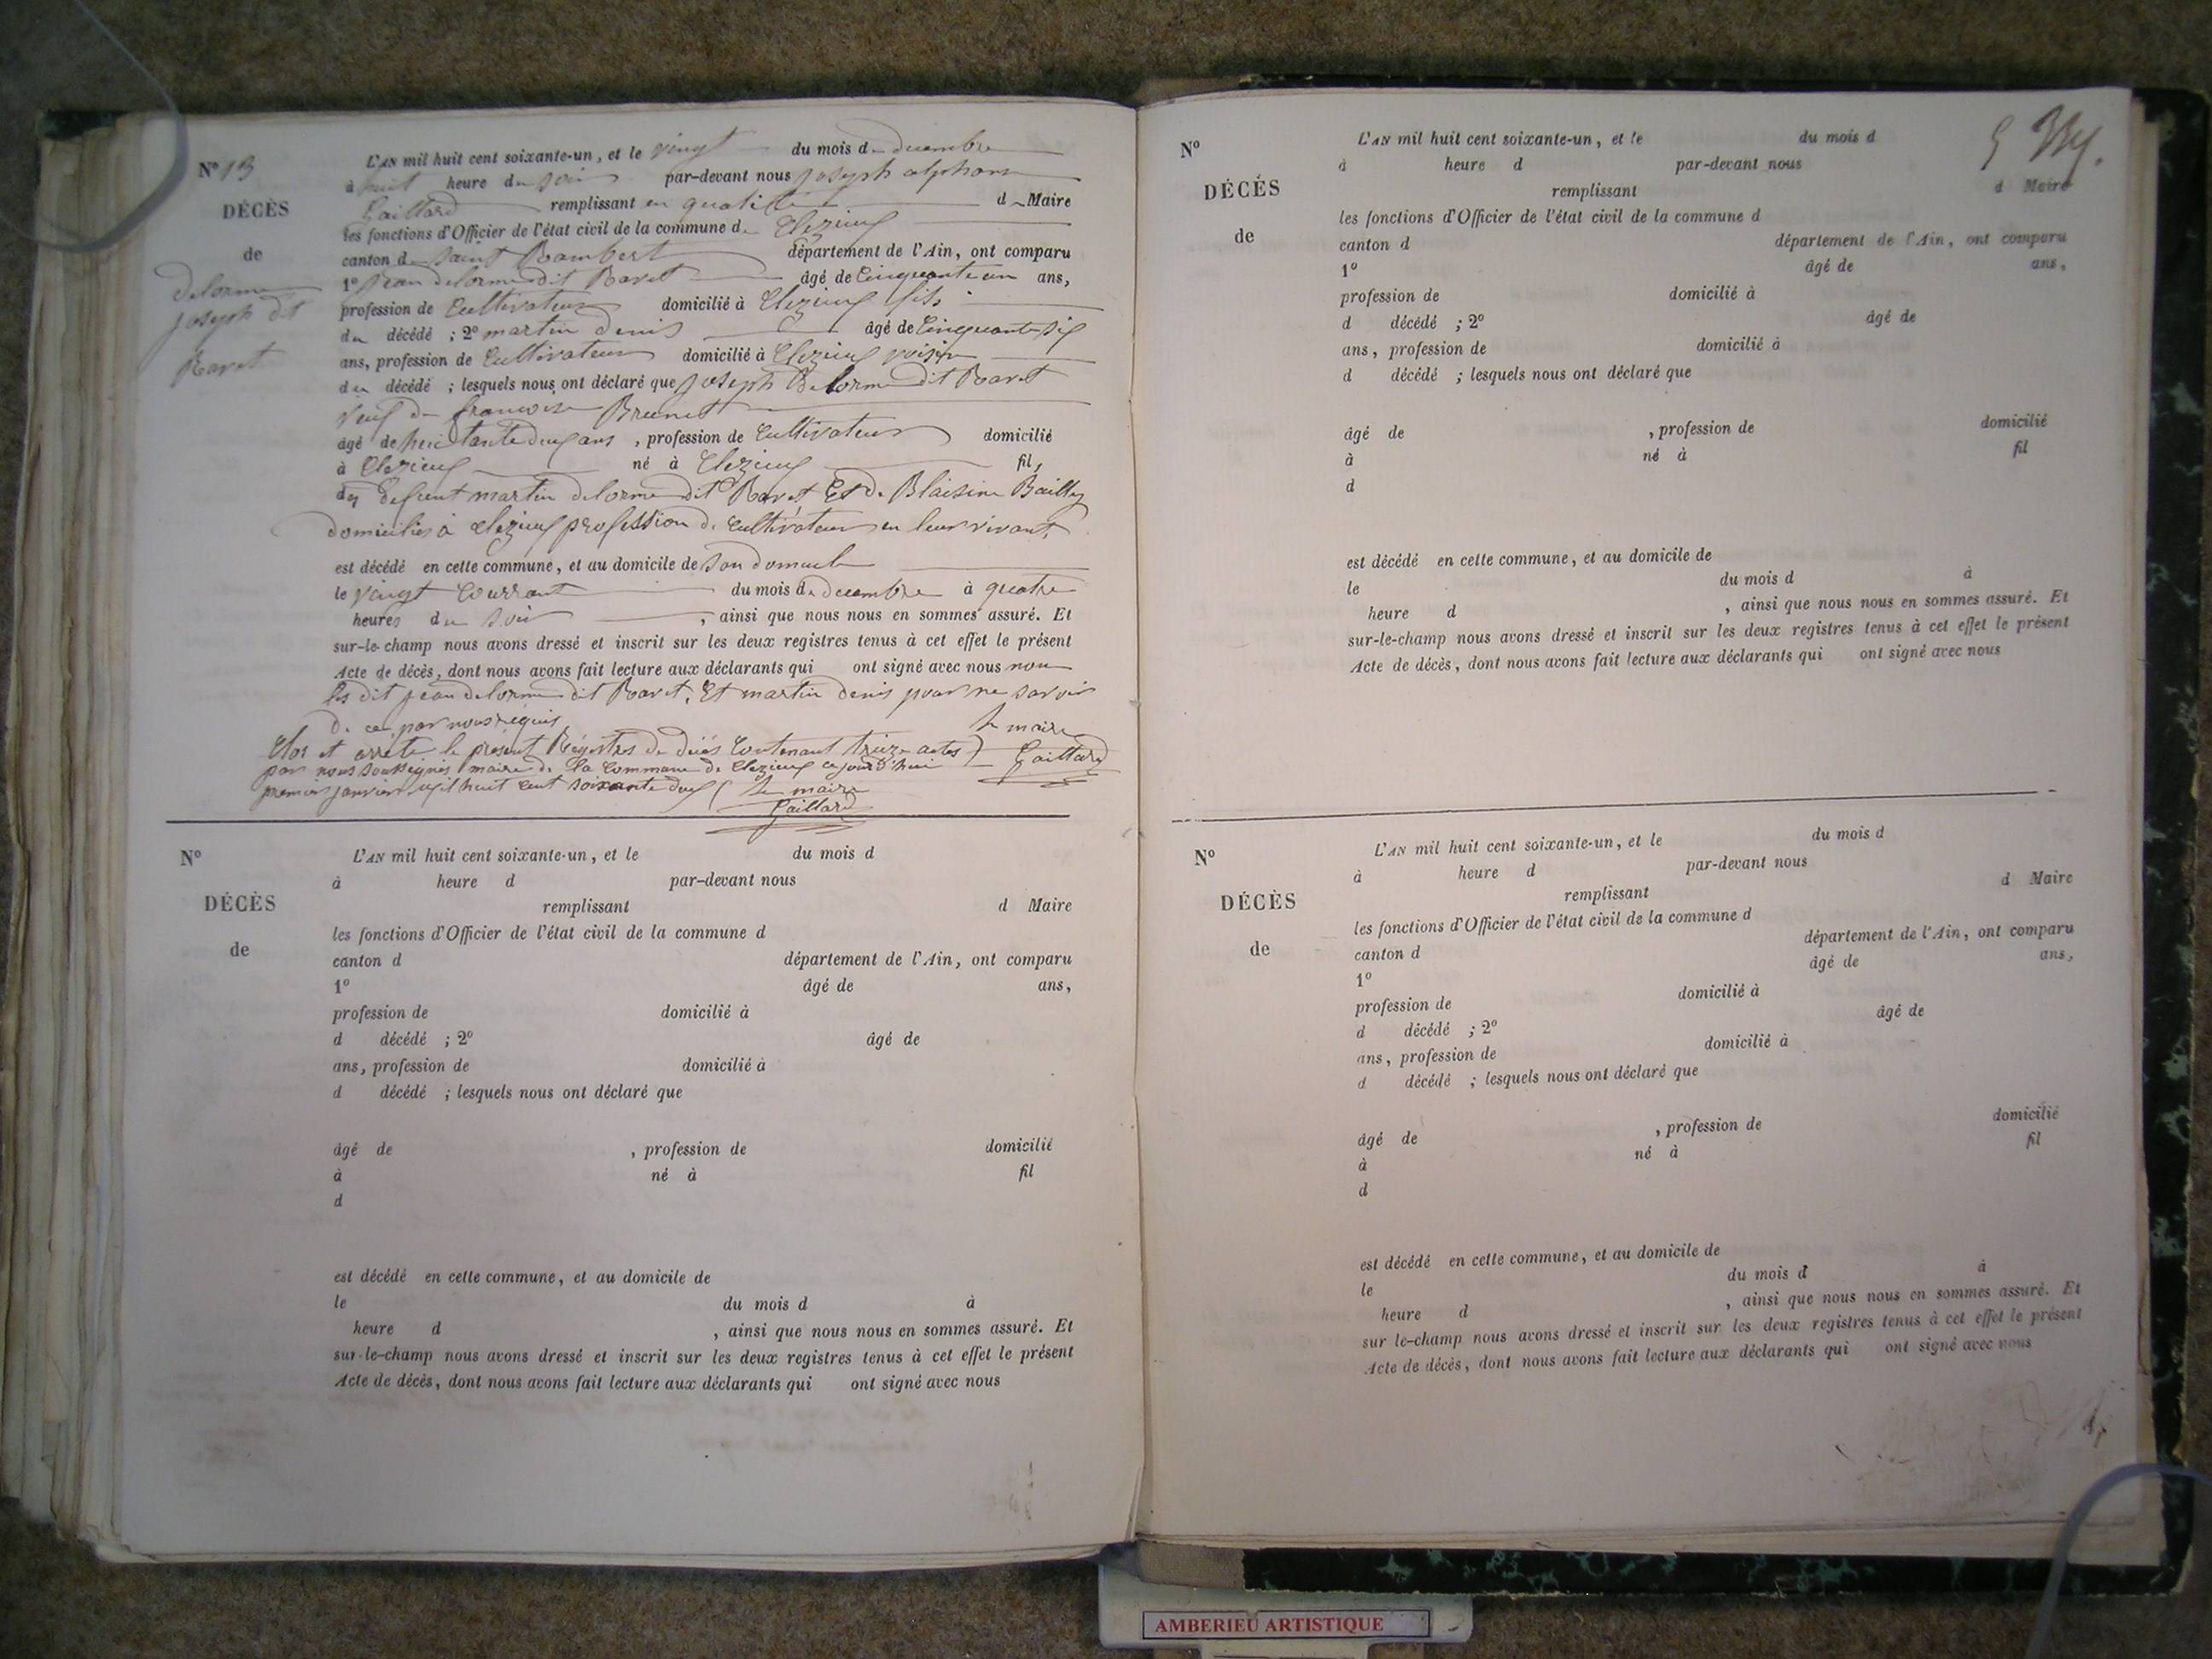 N° 13
DÉCÈS
de
Delorme
joseph dit
Ravet
L'AN mil huit cent soixante-un, et le vingt du mois de decembre
à huit heure du soir par-devant nous joseph alphonse
Gaillard remplissant en qualité de Maire
les fonctions d'Officier de l'état civil de la commune de Clezieux
canton de Saint Rambert département de l'Ain, ont comparu
1° jean delorme dit Ravet âgé de Cinquante un ans,
profession de Cultivateur domicilié à Clezieux fils
du décédé ; 2° martin denis âgé de Cinquante six
ans, profession de Cultivateur domicilié à Clezieux voisin
du décédé ; lesquels nous ont déclaré que joseph Delorme dit Ravet
Veuf de francoise Brunet
âgé de huitante deux ans , profession de Cultivateur domicilié
à Clezieux né à Clezieux fil,
des defunt martin delorme dit Ravet Et de Blaisine Bailly
domiciliés à Clezieux profession de Cultivateur en leur vivant,
est décédé en cette commune, et au domicile de son domicile
le vingt Courrant du mois de decembre à quatre
heures du soir , ainsi que nous nous en sommes assuré. Et
sur-le-champ nous avons dressé et inscrit sur les deux registres tenus à cet effet le présent
Acte de décès, dont nous avons fait lecture aux déclarants qui ont signé avec nous non
les dit jean delorme dit Ravet, Et martin denis pour ne savoir
de ce par nous requis
le maire
Gaillard
Clos et arrete le present Régistres de décés Contenant treize actes
par nous soussignés maire de la Commune de Clezieux ce jour d'hui
premier janvier mil huit cent soixante deux le maire
Gaillard
N°
DÉCÈS
de
L'AN mil huit cent soixante-un, et le du mois d
à heure d par-devant nous
remplissant d Maire
les fonctions d'Officier de l'état civil de la commune d
canton d département de l'Ain, ont comparu
1° âgé de ans,
profession de domicilié à
d décédé ; 2° âgé de
ans, profession de domicilié à
d décédé ; lesquels nous ont déclaré que
âgé de , profession de domicilié
à né à fil
d
est décédé en cette commune, et au domicile de
le du mois d à
heure d , ainsi que nous nous en sommes assuré. Et
sur-le-champ nous avons dressé et inscrit sur les deux registres tenus à cet effet le présent
Acte de décès, dont nous avons fait lecture aux déclarants qui ont signé avec nous
N°
DÉCÉS
de
L'AN mil huit cent soixante-un, et le du mois d
à heure d par-devant nous
remplissant d Maire
les fonctions d'Officier de l'état civil de la commune d
canton d département de l'Ain, ont comparu
1° âgé de ans,
profession de domicilié à
d décédé ; 2° âgé de
ans, profession de domicilié à
d décédé ; lesquels nous ont déclaré que
âgé de , profession de domicilié
à né à fil
d
est décédé en cette commune, et au domicile de
le du mois d à
heure d , ainsi que nous nous en sommes assuré. Et
sur-le-champ nous avons dressé et inscrit sur les deux registres tenus à cet effet le présent
Acte de décès, dont nous avons fait lecture aux déclarants qui ont signé avec nous
N°
DÉCÈS
de
L'AN mil huit cent soixante-un, et le du mois d
à heure d par-devant nous
remplissant d Maire
les fonctions d'Officier de l'état civil de la commune d
canton d département de l'Ain, ont comparu
1° âgé de ans,
profession de domicilié à
d décédé ; 2° âgé de
ans, profession de domicilié à
d décédé ; lesquels nous ont déclaré que
âgé de , profession de domicilié
à né à fil
d
est décédé en cette commune, et au domicile de
le du mois d à
heure d , ainsi que nous nous en sommes assuré. Et
sur le-champ nous avons dressé et inscrit sur les deux registres tenus à cet effet le présent
Acte de décès, dont nous avons fait lecture aux déclarants qui ont signé avec nous
AMBERIEU ARTISTIQUE